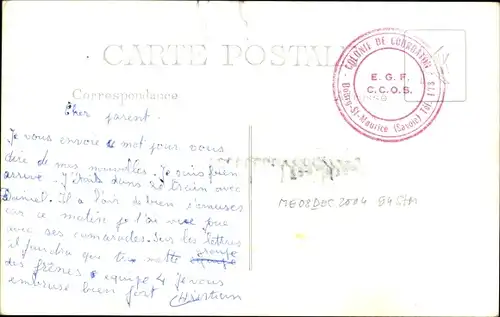 CARTE POSTALE
Correspondance
Cher parent.
Je vous envoie ce mot pour vous
dire de mes nouvelles. Je suis bien
arrivé. J'étais dans le train avec
Daniel. Il a l'air de bien s'amuser
car ce matin je l'ai vue que
avec ses camarades. Sur les lettres
il faudra que tu mette groupe
des frênes équipe 4 Je vous
embrasse bien fort Christian
COLONIE DE COURBATON
E. G. F.
C. C. O. S.
Bourg-St-Maurice (Savoie) Tél. 173
ME08DEC 2014